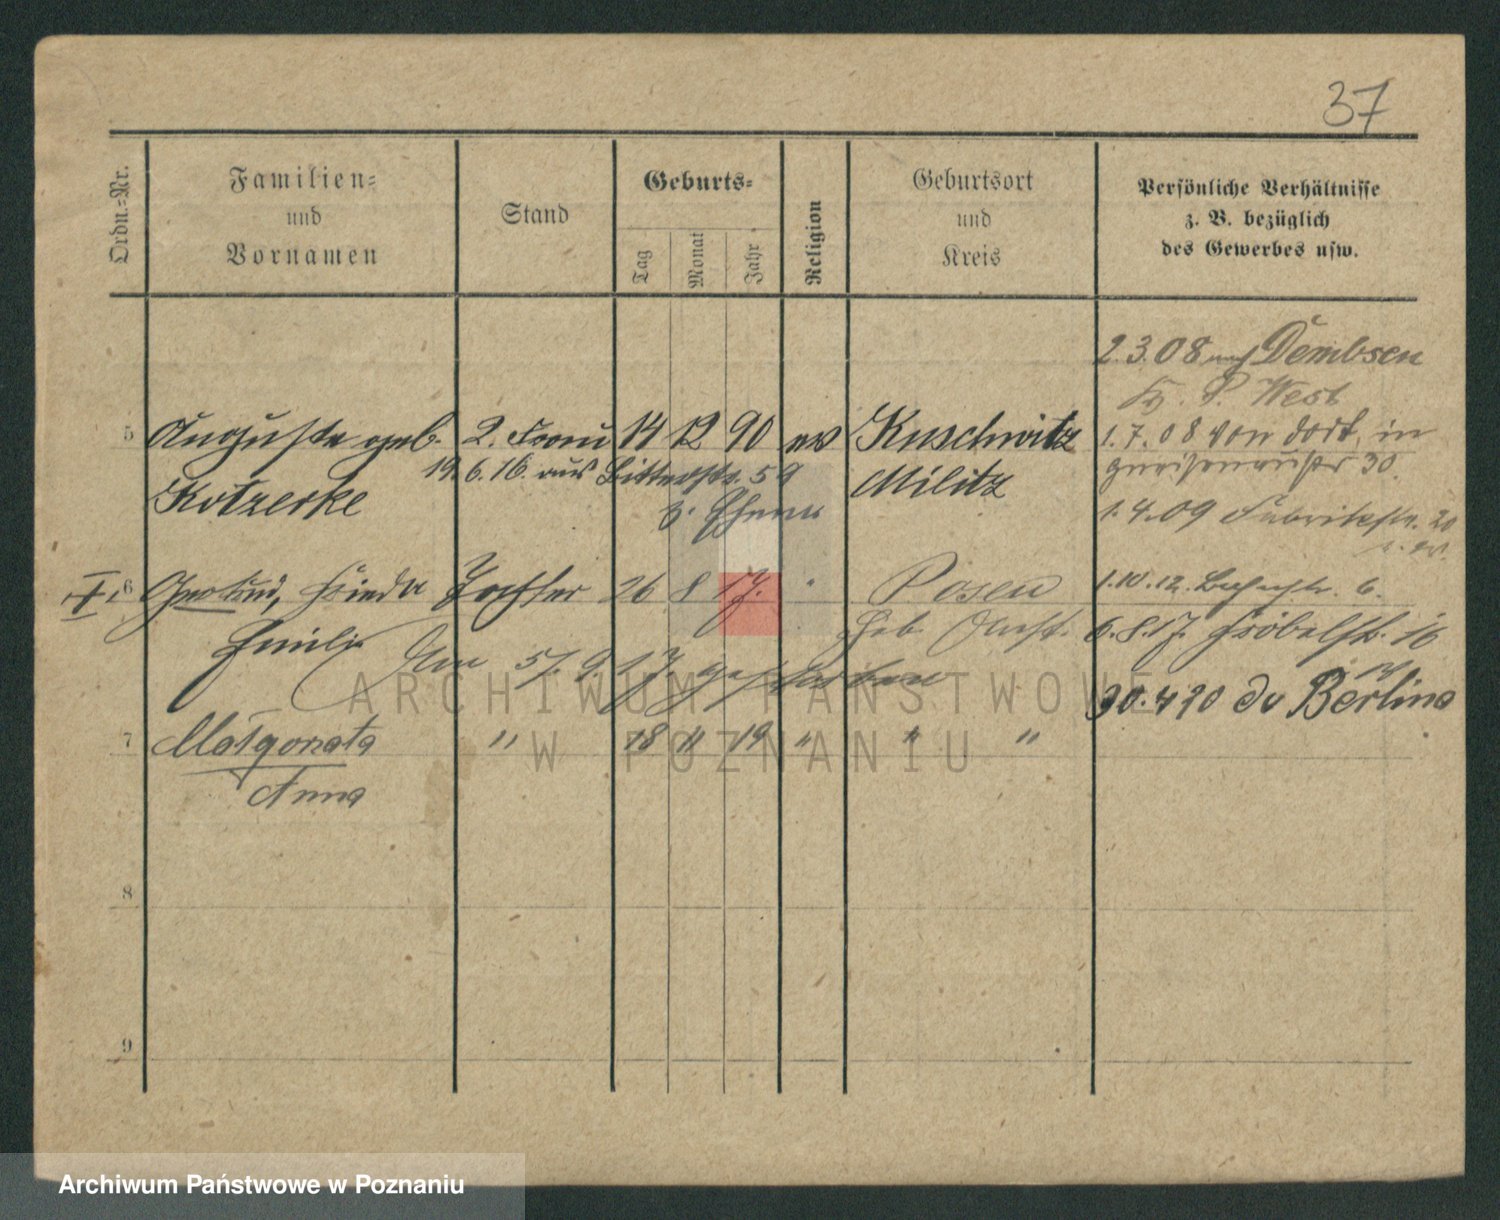 37
Ordn.-Nr.
Familien-
und
Vornamen
Stand
Geburts-
Tag
Monat
Jahr
Religion
Geburtsort
und
Kreis
Persönliche Verhältnisse
z. B. bezüglich
des Gewerbes usw.
2.3.08 nach Dembsen
Kr. P. West
5 Auguste geb. 2. Frau 14 12 90 ev Kuschwitz 1.7.08 von dort, in
19.6.16. aus Bitterstr. 59
Gneisenaustr 30.
Kotzerke
Militz
z. Ehem
1.4.09 Fabrikstr. 20
I. 6 Gertrud, Frieda Tochter 26 8 17. Posen 1.10.12. 6.
Emilie
Geb. Anst. 6.8.17. Fröbelstr. 16
Am 5/.9.17. gestorben
30.4 20 do Berlina
7 Małgorzata " 18 11 19 " " "
Anna
8
9
ARCHIWUM PAŃSTWOWE
W POZNANIU
Archiwum Państwowe w Poznaniu